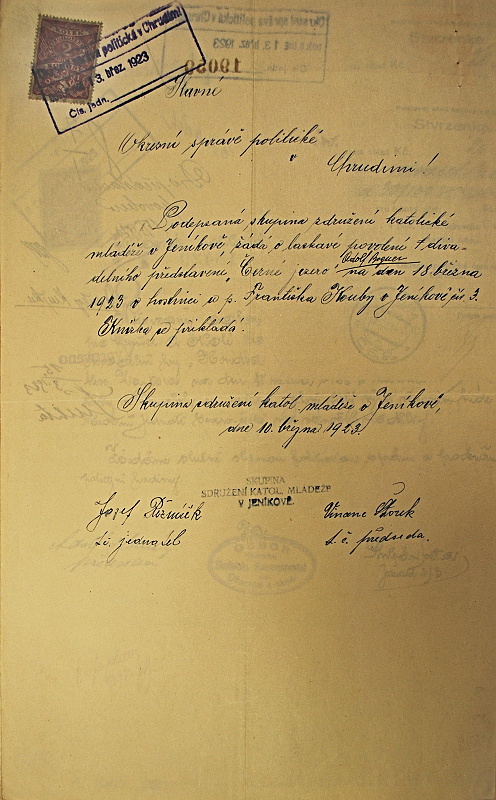 politická v Chrudimi
3. břez. 1923
Čís. jedn.
Slavné
Okresní správě politické
v
Chrudimi!
Podepsaná skupina sdružení katolické
mládeže v Jeníkově, žádá o laskavé povolení diva-
delního představení „Černé jezero
na den 18. března
1923 v hostinci u p. Františka Kouby v Jeníkově čís. 3.
Knížka se přikládá.
Skupina sdružení katol. mládeže v Jeníkově,
dne 10. března 1923.
SKUPINA
SDRUŽENÍ KATOL. MLÁDEŽE
V JENÍKOVĚ.
Josef
t. č. jednatel
t. č. předseda.